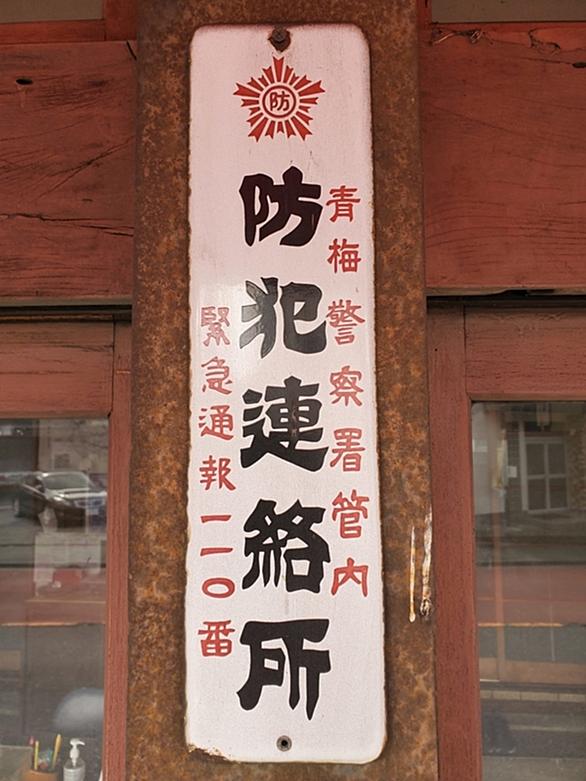 防
青梅警察署管内
防犯連絡所
緊急通報一一〇番